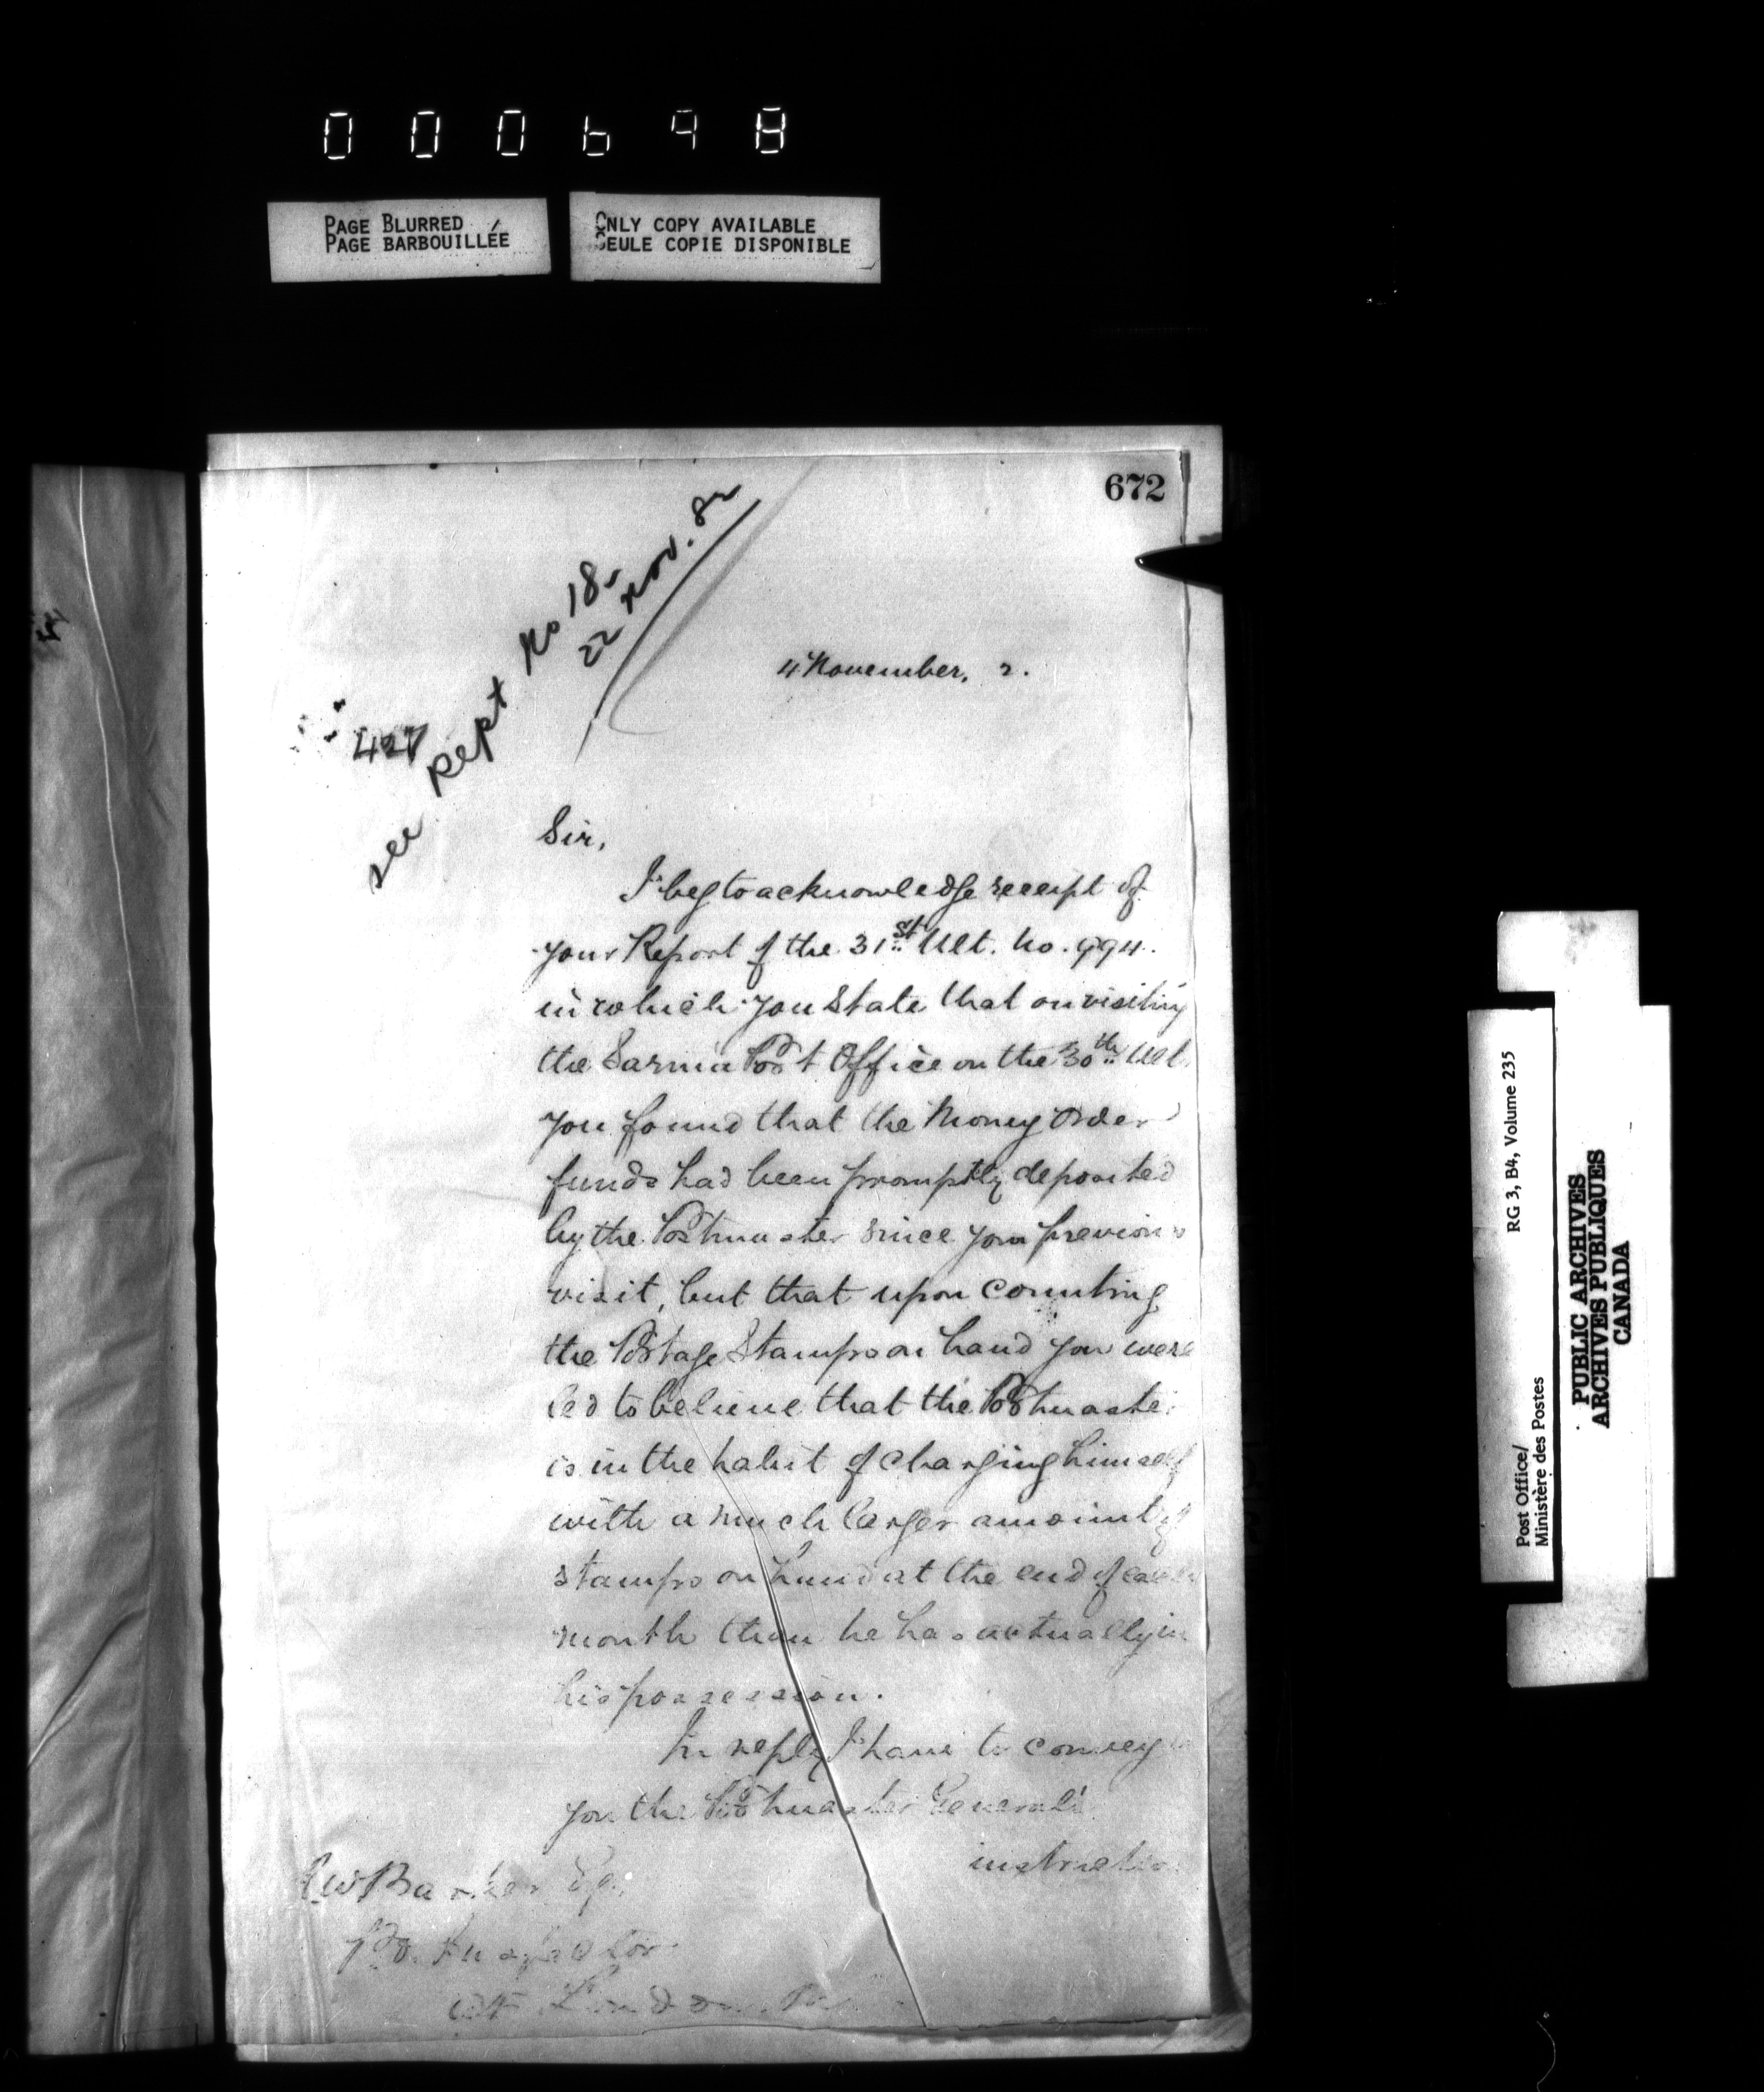 000698
PAGE BLURRED
PAGE BARBOUILLÉE
ONLY COPY AVAILABLE
SEULE COPIE DISPONIBLE
672
see Rept No 18-
22 Nov. 82
4 November, 2.
427
Sir,
I beg to acknowledge receipt of
your Report of the 31st Ult. No. 994.
in which you state that on visiting
the Sarnia Post Office on the 30th Ult.
you found that the Money Order
funds had been promptly deposited
by the Postmaster since your previous
visit, but that upon counting
the Postage Stamps on hand you were
led to believe that the Postmaster
is in the habit of charging himself
with a much larger amount of
stamps on hand at the end of each
month than he has actually in
his possession.
In reply I have to convey to
you the Postmaster General's
instruction
R W Barker Esq.
P.O. Inspector
at London. On
RG 3, B4, Volume 235
Post Office/
Ministère des Postes
PUBLIC ARCHIVES
ARCHIVES PUBLIQUES
CANADA